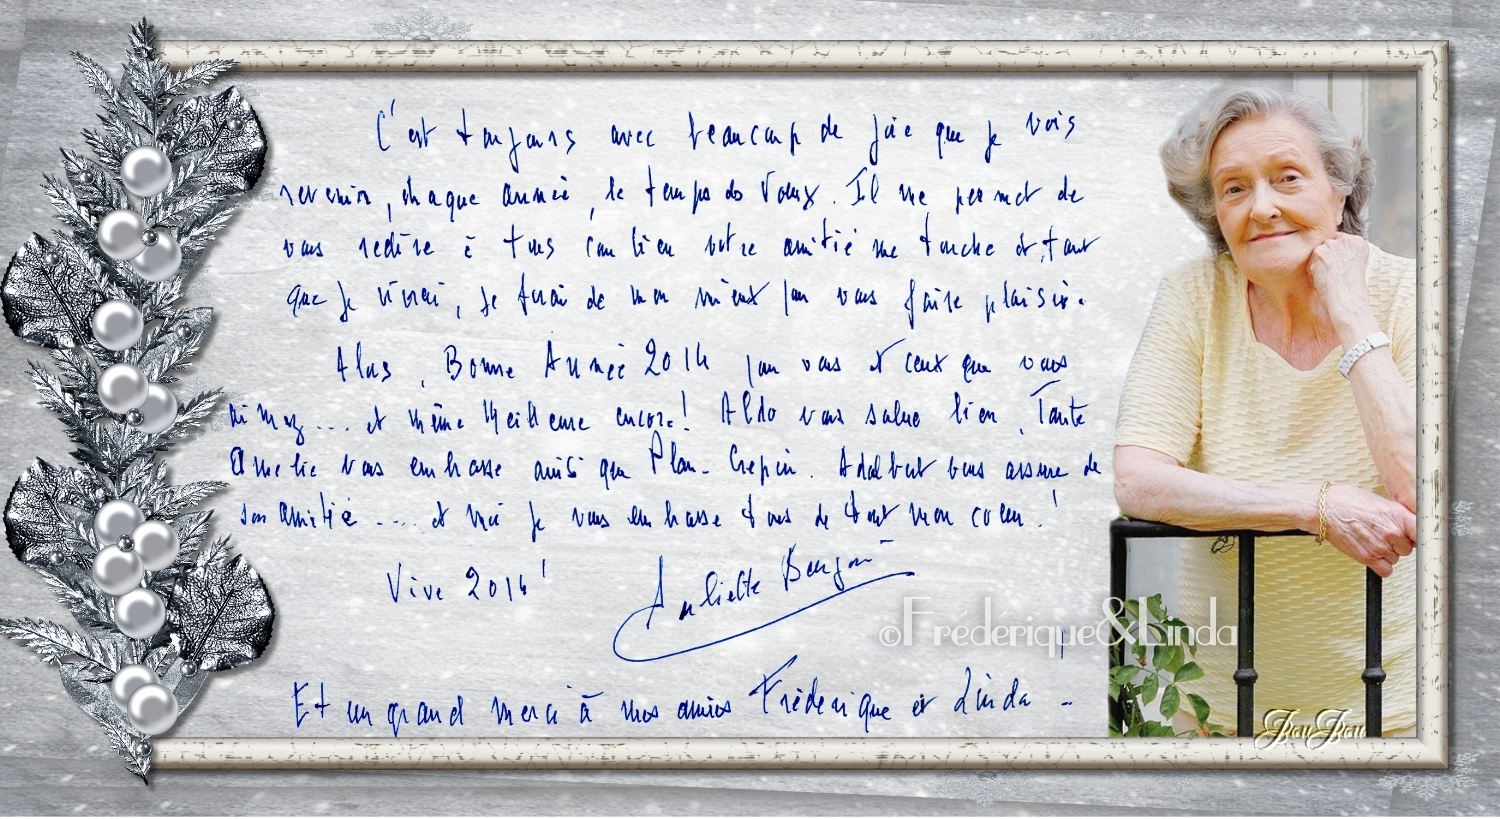 C'est toujours avec beaucoup de joie que je vois
revenir, chaque année, le temps des Voeux. Il me permet de
vous redire à tous combien votre amitié me touche et, tant
que je vivrai, je ferai de mon mieux pour vous faire plaisir.
Alors, Bonne Année 2014 pour vous et ceux que vous
aimez.... et même Meilleure encore! Aldo vous salue bien, Tante
Amélie vous embrasse ainsi que Plan-Crépin. Adalbert vous assure de
son amitié.... et moi je vous embrasse tous de tout mon coeur!
Vive 2014!
Juliette Benzoni
©Frederique&Linda
Et un grand merci à mes amies Frédérique et Linda -